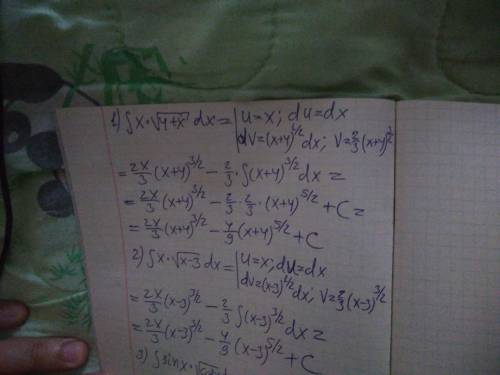 1) ∫x·√(4+x) dx = | u=x; du=dx
| dV=(x+4)^{1/2} dx; V=2/3 (x+4)^{3/2}
= 2x/3 (x+4)^{3/2} − 2/3·∫(x+4)^{3/2} dx =
= 2x/3 (x+4)^{3/2} − 2/3·2/3·(x+4)^{5/2} + C =
= 2x/3 (x+4)^{3/2} − 4/9 (x+4)^{5/2} + C
2) ∫x·√(x-3) dx = | u=x; du=dx
| dV=(x-3)^{1/2} dx; V=2/3 (x-3)^{3/2}
= 2x/3 (x-3)^{3/2} − 2/3 ∫(x-3)^{3/2} dx =
= 2x/3 (x-3)^{3/2} − 4/9 (x-3)^{5/2} + C
3) ∫sinx·√